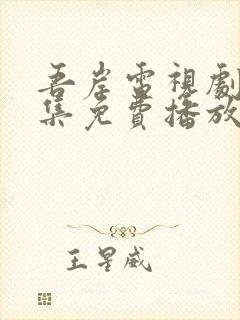 吾岸電視劇
集免費播放
王星威